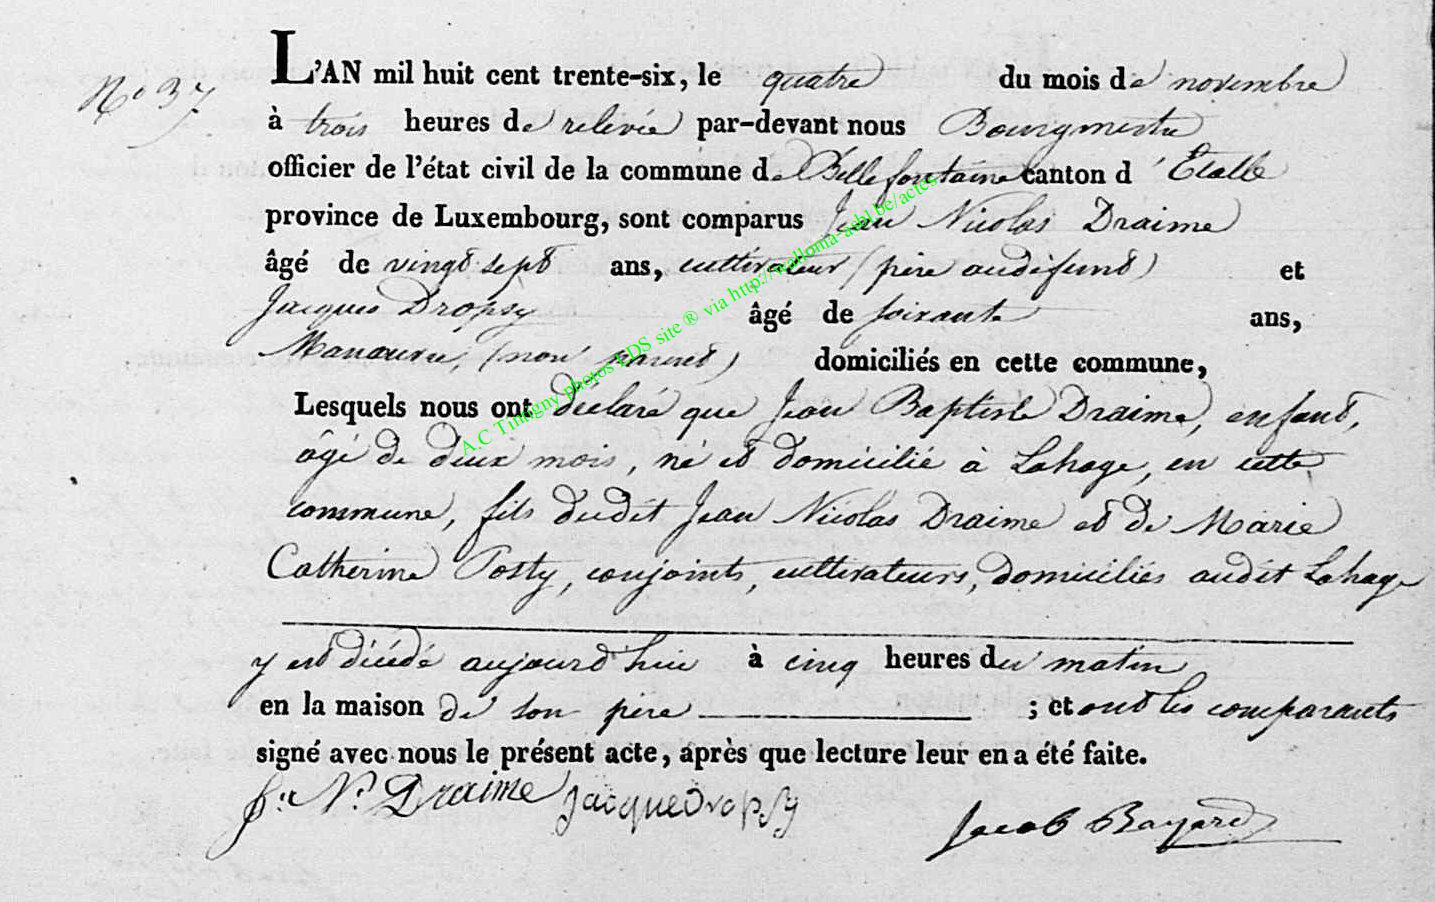 No 37
L'AN mil huit cent trente-six, le quatre du mois de novembre
à trois heures de relevée par-devant nous Bourgmestre
officier de l'état civil de la commune de Bellefontaine canton d'Etalle
province de Luxembourg, sont comparus Jean Nicolas Draime
âgé de vingt sept ans, cultivateur (père au défunt) et
Jacques Dropsy âgé de soixante ans,
Manœuvre, (non parent) domiciliés en cette commune,
Lesquels nous ont déclaré que Jean Baptiste Draime, enfant,
âgé de deux mois, né et domicilié à Lahage, en cette
commune, fils dudit Jean Nicolas Draime et de Marie
Catherine Posty, conjoints, cultivateurs, domiciliés audit Lahage
y est décédé aujourd'hui à cinq heures du matin
en la maison de son père ; et ont les comparants
signé avec nous le présent acte, après que lecture leur en a été faite.
Jn Ns Draime Jacque Dropsy Jacob Bayard
A.C Tintigny photos LDS site ® via http://walloma-asbl.be/actes